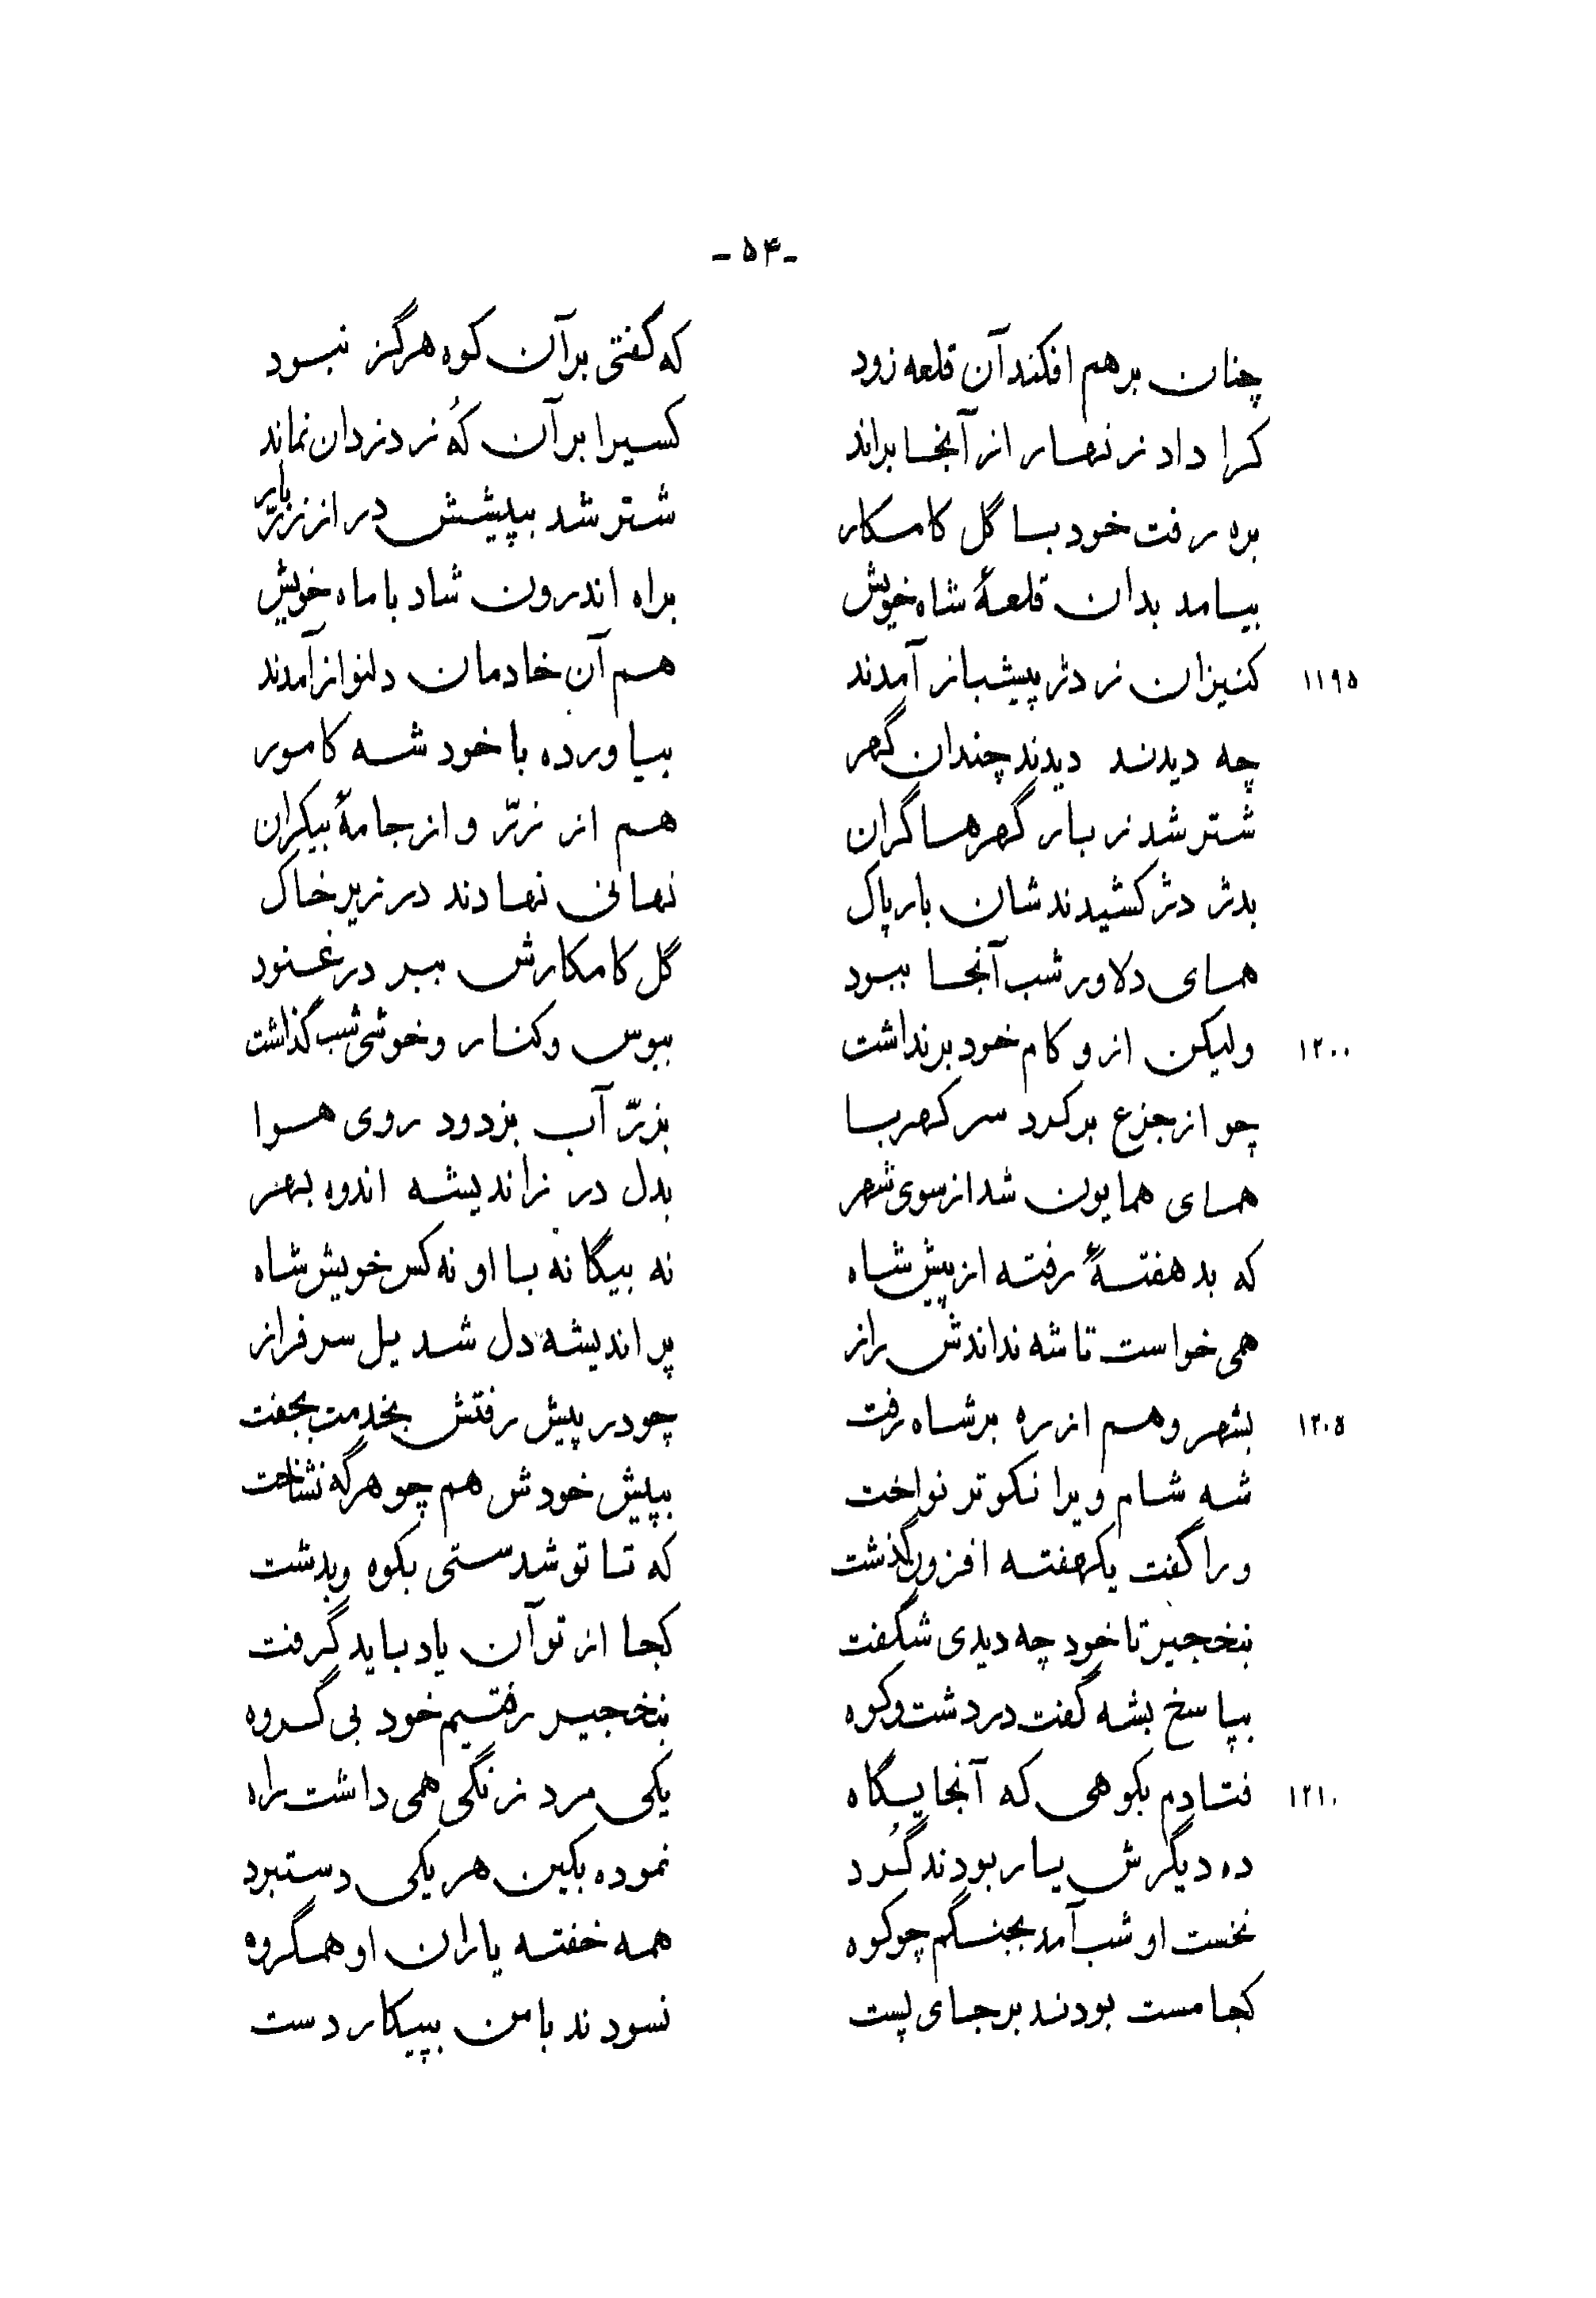 -۵۴-
چنان برهم افکند آن قلعه زود که گفتی بر آن کوه هرگز نبود
کرا داد زنهار از آنجا براند کسیرا بر آن کُه ز دزدان نماند
بره رفت خود با گل کامکار شتر شد بپیشش در از زرّ بار
بیامد بدان قلعهٔ شاه خویش براه اندرون شاد با ماه خویش
۱۱۹۵ کنیزان ز دژ پیشباز آمدند هم آن خادمان دلنواز آمدند
چه دیدند دیدند چندان گهر بیاورده با خود شه کامور
شتر شد ز بار گهرها گران هم از زرّ و از جامهٔ بیکران
بدژ در کشیدند شان بار پاک نهانی نهادند در زیر خاک
همای دلاور شب آنجا ببود گل کامکارش ببر در غنود
۱۲۰۰ ولیکن ازو کام خود برنداشت ببوس و کنار و خوشی شب گذاشت
چو از جزع بر کرد سر کهربا بزرّ آب بزدود روی هوا
همای همایون شد از سوی شهر بدل در ز اندیشه اندوه بهر
که بد هفتهٔ رفته از پیش شاه نه بیگانه با او نه کس خویش شاه
همی خواست تا شه نداندش راز پر اندیشه دل شد یل سرفراز
۱۲۰۵ بشهر و هم از ره بر شاه رفت چو در پیش رفتش بخدمت بجفت
شه شام ویرا نکوتر نواخت بپیش خودش هم چو هرگه نشاخت
ورا گفت یکهفته افزون گذشت که تا تو شدستی بکوه و بدشت
بنخجیر تا خود چه دیدی شگفت کجا از تو آن یاد باید گرفت
بپاسخ بشه گفت در دشت و کوه بنخجیر رفتیم خود بی گروه
۱۲۱۰ فتادم بکوهی که آنجا پگاه یکی مرد زنگی همی داشت راه
ده دیگرش یار بودند گُرد نموده بکین هر یکی دستبرد
نخست او شب آمد بجنگم چو کوه همه خفته یاران او همگروه
کجا مست بودند بر جای پست نسودند با من بپیکار دست